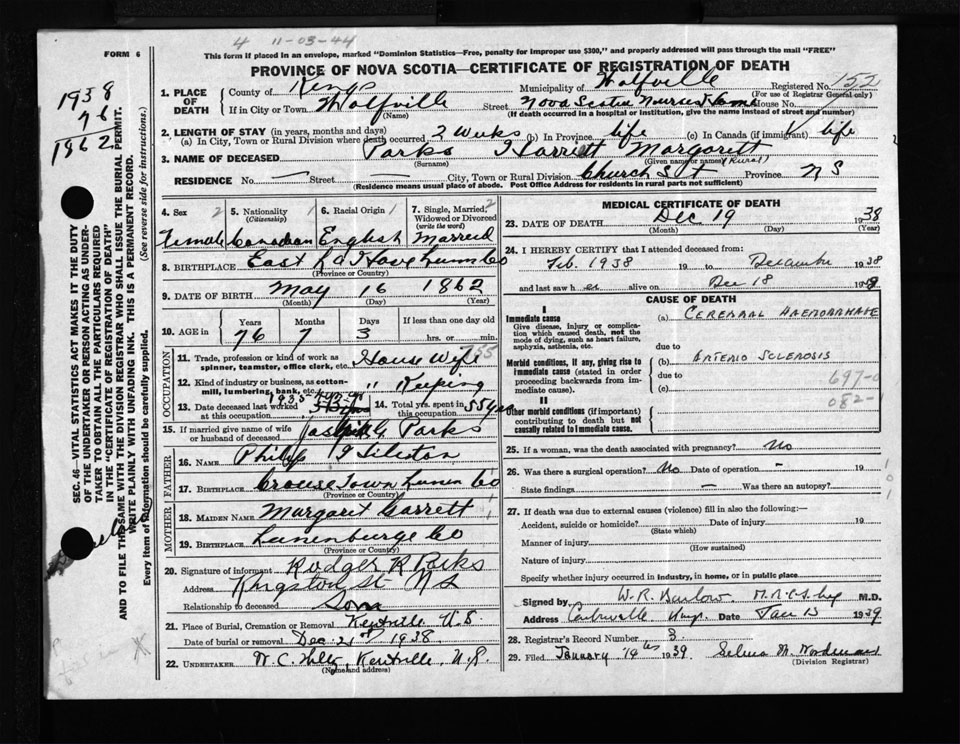 4 11-03-44
FORM 6
This form if placed in an envelope, marked "Dominion Statistics—Free, penalty for improper use $300," and properly addressed will pass through the mail "FREE"
PROVINCE OF NOVA SCOTIA—CERTIFICATE OF REGISTRATION OF DEATH
1938
76
1862
SEC. 46—VITAL STATISTICS ACT MAKES IT THE DUTY
OF THE UNDERTAKER OR PERSON ACTING AS UNDER-
TAKER TO OBTAIN ALL THE PARTICULARS REQUIRED
IN THE "CERTIFICATE OF REGISTRATION OF DEATH"
AND TO FILE THE SAME WITH THE DIVISION REGISTRAR WHO SHALL ISSUE THE BURIAL PERMIT.
WRITE PLAINLY WITH UNFADING INK. THIS IS A PERMANENT RECORD.
Every item of information should be carefully supplied. (See reverse side for instructions.)
1. PLACE OF DEATH
County of Kings Municipality of Wolfville Registered No. 152
(For use of Registrar General only)
If in City or Town Wolfville Street Nova Scotia Nurses Home House No.
(Name) (If death occurred in a hospital or institution, give the name instead of street and number)
2. LENGTH OF STAY (in years, months and days)
(a) In City, Town or Rural Division where death occurred 2 Weeks (b) In Province life (c) In Canada (if immigrant) life
3. NAME OF DECEASED Parks Harrett Margarett
(Surname) (Given name or names) (Rural)
RESIDENCE No. — Street — City, Town or Rural Division Church St Province N S
(Residence means usual place of abode. Post Office Address for residents in rural parts not sufficient)
4. Sex 2 Female
5. Nationality (Citizenship) 1 Canadian
6. Racial Origin 1 English
7. Single, Married, Widowed or Divorced (write the word) 2 Married
8. BIRTHPLACE East La Have Lunn Co
(Province or Country)
9. DATE OF BIRTH May 16 1862
(Month) (Day) (Year)
10. AGE in Years Months Days If less than one day old
76 7 3 hrs. or min.
OCCUPATION
11. Trade, profession or kind of work as spinner, teamster, office clerk, etc. House Wife
12. Kind of industry or business, as cotton-mill, lumbering, bank, etc. " Keeping
13. Date deceased last worked at this occupation 1935
14. Total yrs. spent in this occupation 55 yrs
15. If married give name of wife or husband of deceased Parks
FATHER
16. NAME Philip
17. BIRTHPLACE Crouse Town Lunen Co
(Province or Country)
MOTHER
18. MAIDEN NAME Margaret Garrett
19. BIRTHPLACE Lunenburge Co
(Province or Country)
20. Signature of informant Rodger R Parks
Address Kingston St N S
Relationship to deceased Son
21. Place of Burial, Cremation or Removal Kentville N.S.
Date of burial or removal Dec 21st 1938
22. UNDERTAKER W.C. Kentville, N.S.
(Name and address)
MEDICAL CERTIFICATE OF DEATH
23. DATE OF DEATH Dec 19 1938
(Month) (Day) (Year)
24. I HEREBY CERTIFY that I attended deceased from:
Feb. 1938 19 to December 1938
and last saw her alive on Dec 18 1938
CAUSE OF DEATH
I
Immediate cause (a) CEREBRAL HAEMORRHAGE
Give disease, injury or complication which caused death, not the mode of dying, such as heart failure, asphyxia, asthenia, etc.
due to
Morbid conditions, if any, giving rise to immediate cause (stated in order proceeding backwards from immediate cause). (b) ARTERIO SCLEROSIS
due to
(c)
697-0
082-
II
Other morbid conditions (if important) contributing to death but not causally related to immediate cause.
25. If a woman, was the death associated with pregnancy? No
26. Was there a surgical operation? No Date of operation - 19
State findings — Was there an autopsy?
27. If death was due to external causes (violence) fill in also the following:—
Accident, suicide or homicide? Date of injury 19
(State which)
Manner of injury
(How sustained)
Nature of injury
Specify whether injury occurred in industry, in home, or in public place
Signed by W. R. Barlow M.D.
Address Date Jan 13 1939
28. Registrar's Record Number 3
29. Filed January 14th 1939 Selina M. Woodman
(Division Registrar)